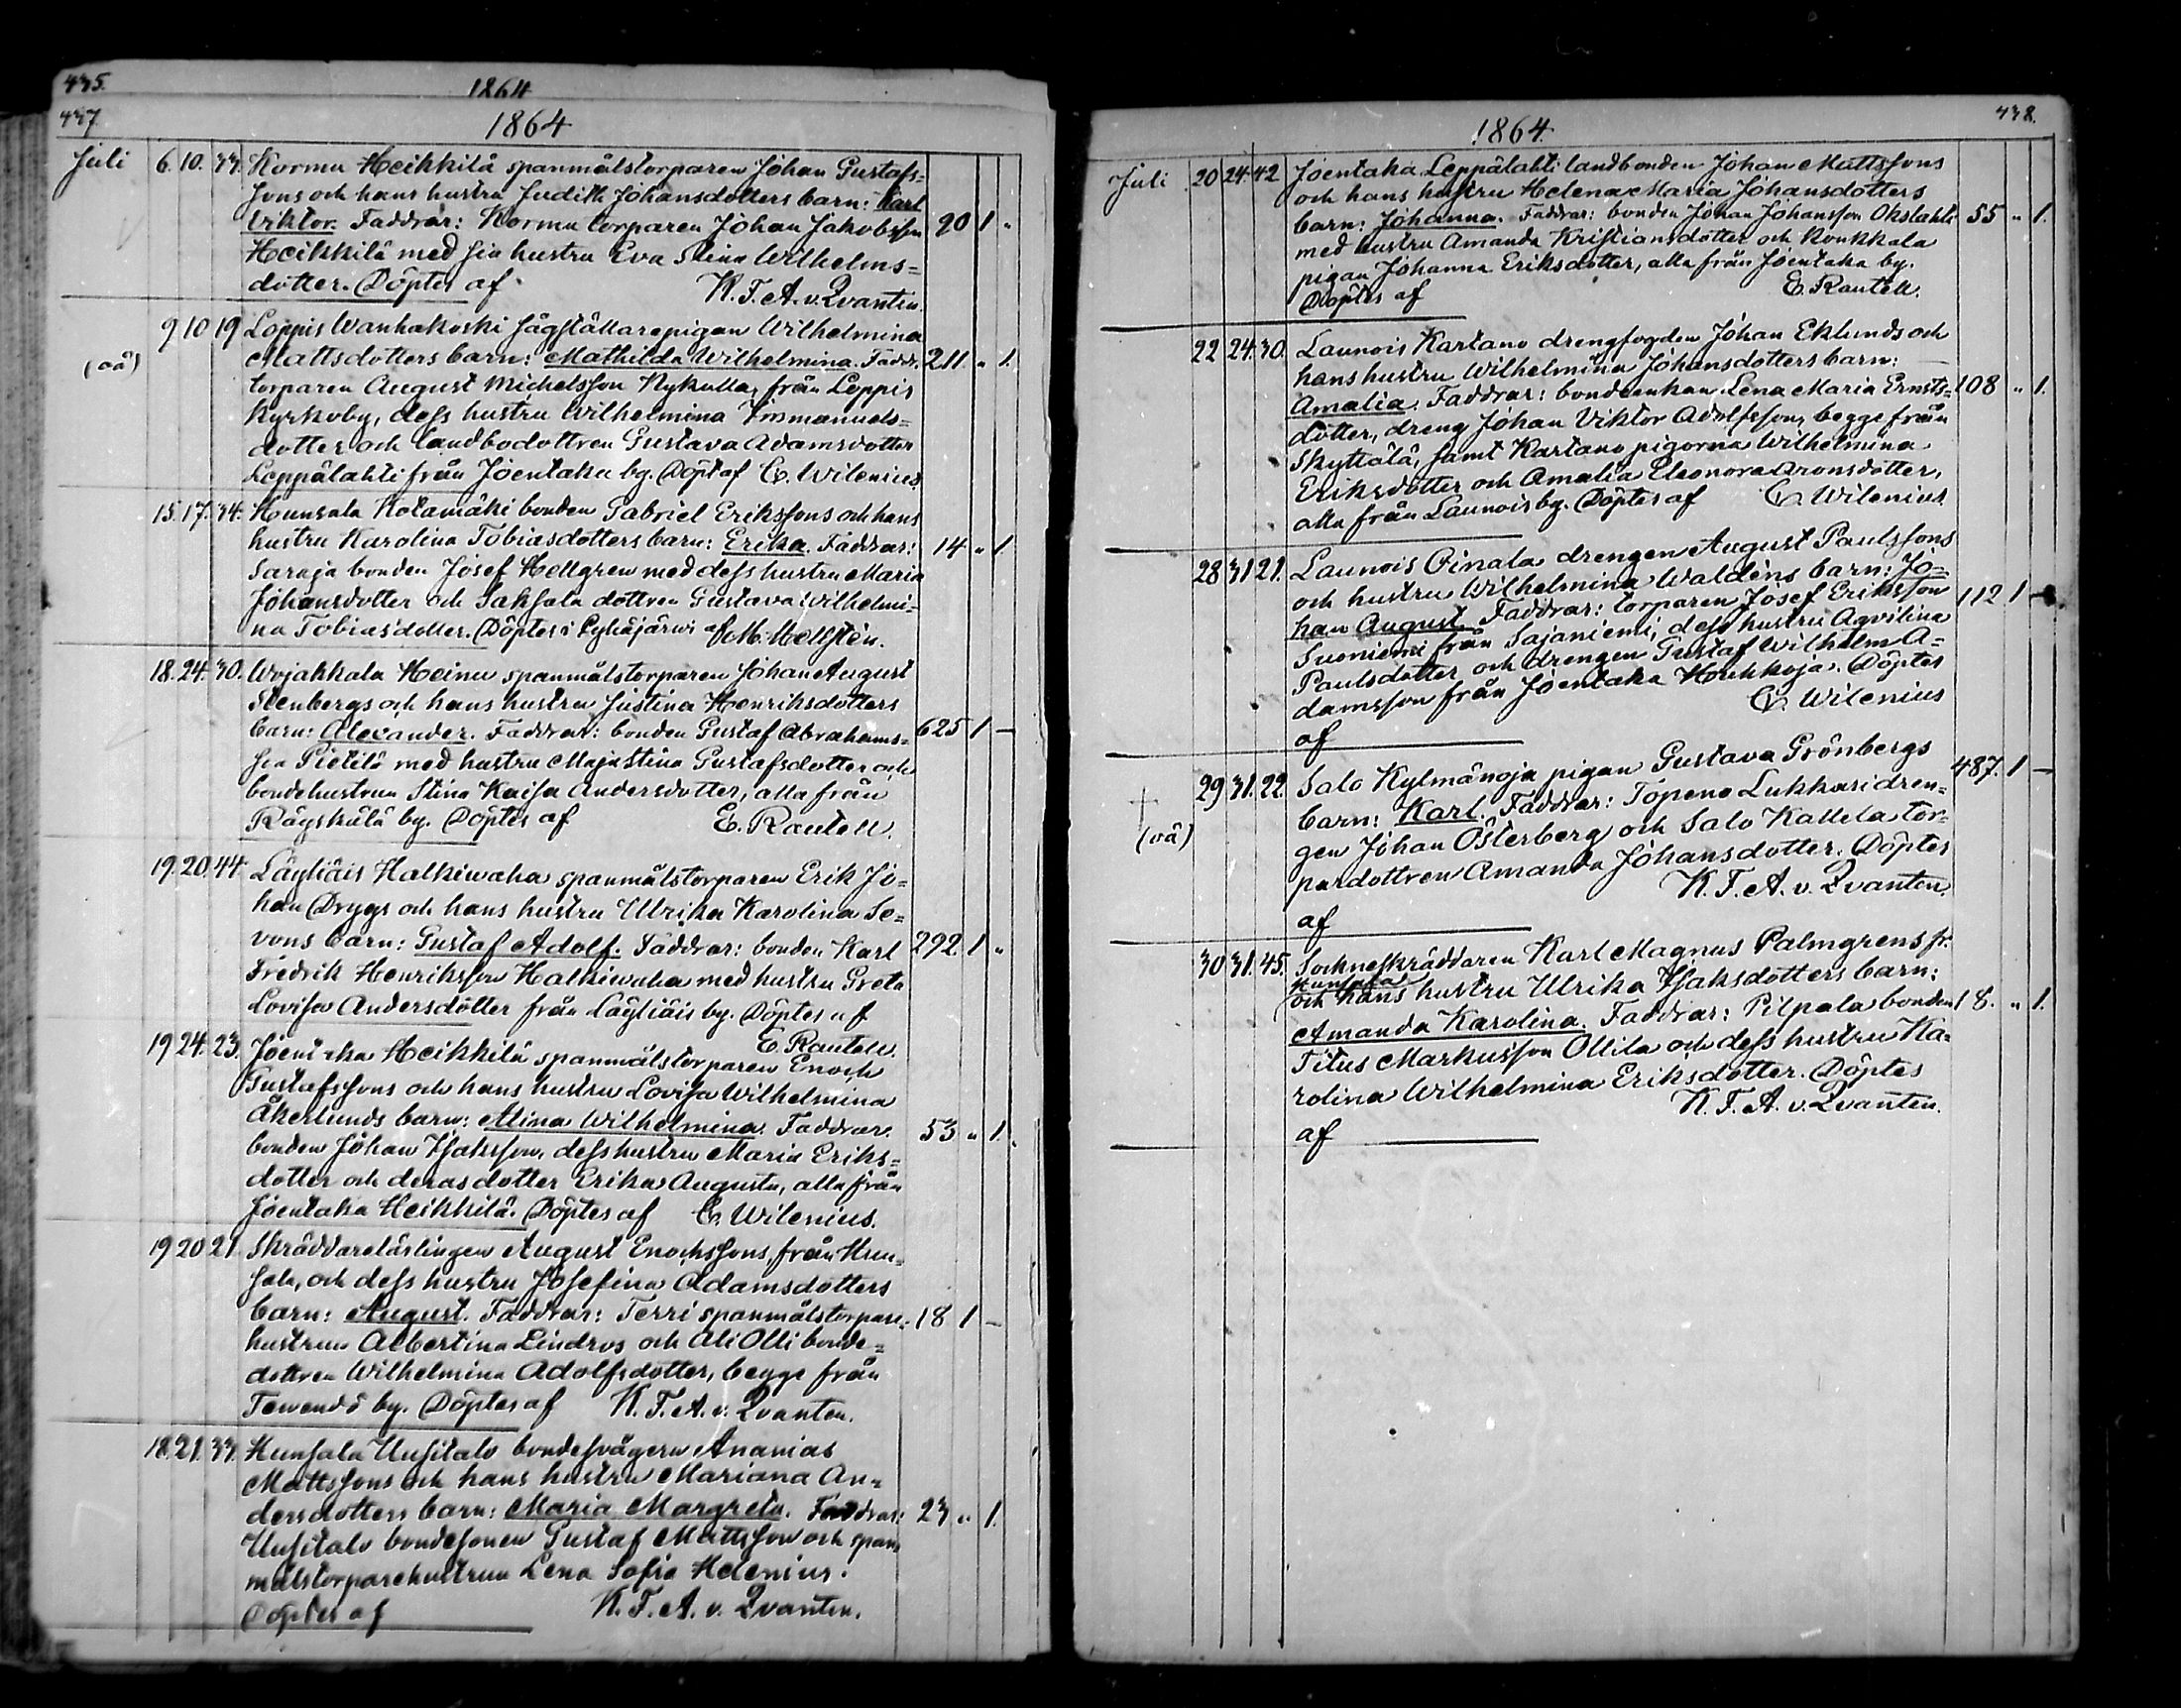 435.
1864
437.
1864
Juli 6. 10. 33. Kormu Heikkilä spanmålstorparen Johan Gustafs=
sons och hans hustru Judith Johansdotters barn: Karl
Viktor. Faddrar: Kormu torparen Johan Jakobsson 90 1 "
Heikkilä med sin hustru Eva Stina Wilhelms=
dotter. Döptes af K. F. A. v. Qvanten.
9 10 19 Loppis Wanhakoski sågställarepigan Wilhelmina
(oä) Mattsdotters barn: Mathilda Wilhelmina. Faddr. 211. " 1.
torparen August Michelsson Nykulla, från Loppis
Kyrkoby, dess hustru Wilhelmina Immanuels=
dotter och landbodottren Gustava Adamsdotter
Leppälahti från Joentaka by. Döpt af C. Wilenius.
15. 17. 34. Hunsala Kotamäki bonden Gabriel Erikssons och hans
hustru Karolina Tobiasdotters barn: Erika. Faddrar: 14 " 1
Saraja bonden Josef Hellgren med dess hustru Maria
Johansdotter och Saksala dottren Gustava Wilhelmi=
na Tobiasdotter. Döptes i Pyhäjärwi af M. Mellstén.
18. 24. 30. Wojakkala Heinu spanmålstorparen Johan August
Stenbergs och hans hustru Justina Henriksdotters
barn: Alexander. Faddrar: bonden Gustaf Abrahams= 625 1 —
son Pietilä med hustru Maja Stina Gustafsdotter och
bondehustrun Stina Kajsa Andersdotter, alla från
Räyskälä by. Döptes af E. Rautell.
19. 20. 44. Läyliäis Halkiwaha spanmålstorparen Erik Jo=
han Drygs och hans hustru Ulrika Karolina Se=
vons barn: Gustaf Adolf. Faddrar: bonden Karl 292. 1 "
Fredrik Henriksson Halkiwaha med hustru Greta
Lovisa Andersdotter från Läyliäis by. Döptes af
E. Rautell.
19 24. 23. Joentaka Heikkilä spanmålstorparen Enoch
Gustafssons och hans hustru Lovisa Wilhelmina
Åkerlunds barn: Alina Wilhelmina. Faddrar: 53 " 1.
bonden Johan Isaksson, dess hustru Maria Eriks=
dotter och deras dotter Erika Augusta, alla från
Joentaka Heikkilä. Döptes af C. Wilenius.
19 20 21. Skräddarelärlingen August Enochssons, från Hun=
sala, och dess hustru Josefina Adamsdotters
barn: August. Faddrar: Terri spanmålstorpare= 18 1 —
hustrun Albertina Lindros och Ali Olli bonde=
dottren Wilhelmina Adolfsdotter, begge från
Tewendö by. Döptes af K. F. A. v. Qvanten.
18. 21. 33. Hunsala Uusitalo bondesvågern Ananias
Mattssons och hans hustru Mariana An=
dersdotters barn: Maria Margreta. Faddrar: 23 " 1.
Uusitalo bondesonen Gustaf Mattsson och span=
målstorparehustrun Lena Sofia Helenius.
Döptes af K. F. A. v. Qvanten.
438.
1864.
Juli 20 24. 42 Joentaka Leppälahti landbonden Johan Mattssons
och hans hustru Helena Maria Johansdotters
barn: Johanna. Faddrar: bonden Johan Johansson Okslahti 55 " 1.
med hustru Amanda Kristiansdotter och Koukkala
pigan Johanna Eriksdotter, alla från Joentaka by.
Döptes af E. Rautell.
22 24. 30. Launois Kartano drengfogden Johan Eklunds och
hans hustru Wilhelmina Johansdotters barn:
Amalia. Faddrar: bondeenkan Lena Maria Ernsts= 108 " 1.
dotter, dreng Johan Viktor Adolfsson, begge från
Skyttälä, samt Kartano pigorna Wilhelmina
Eriksdotter och Amalia Eleonora Aronsdotter,
alla från Launois by. Döptes af C. Wilenius
28 31 21. Launois Oinala drengen August Paulssons
och hustru Wilhelmina Waldéns barn: Jo=
han August. Faddrar: torparen Josef Eriksson 112 1 —
Suoniemi från Sajaniemi, dess hustru Aqvilina
Paulsdotter och drengen Gustaf Wilhelm A=
damsson från Joentaka Houkkoja. Döptes
af C. Wilenius
29 31. 22. Salo Kylmänoja pigan Gustava Grönbergs 487. 1 —
†
(oä) barn: Karl. Faddrar: Topeno Lukkari dren=
gen Johan Österberg och Salo Kallela tor=
pardottren Amanda Johansdotter. Döptes
af K. F. A. v. Qvanten.
30 31. 45. Sockneskräddaren Karl Magnus Palmgrens fr.
Hunsala
och hans hustru Ulrika Isaksdotters barn:
Amanda Karolina. Faddrar: Pilpala bonden 18. " 1.
Titus Markusson Ollila och dess hustru Ka=
rolina Wilhelmina Eriksdotter. Döptes
af K. F. A. v. Qvanten.